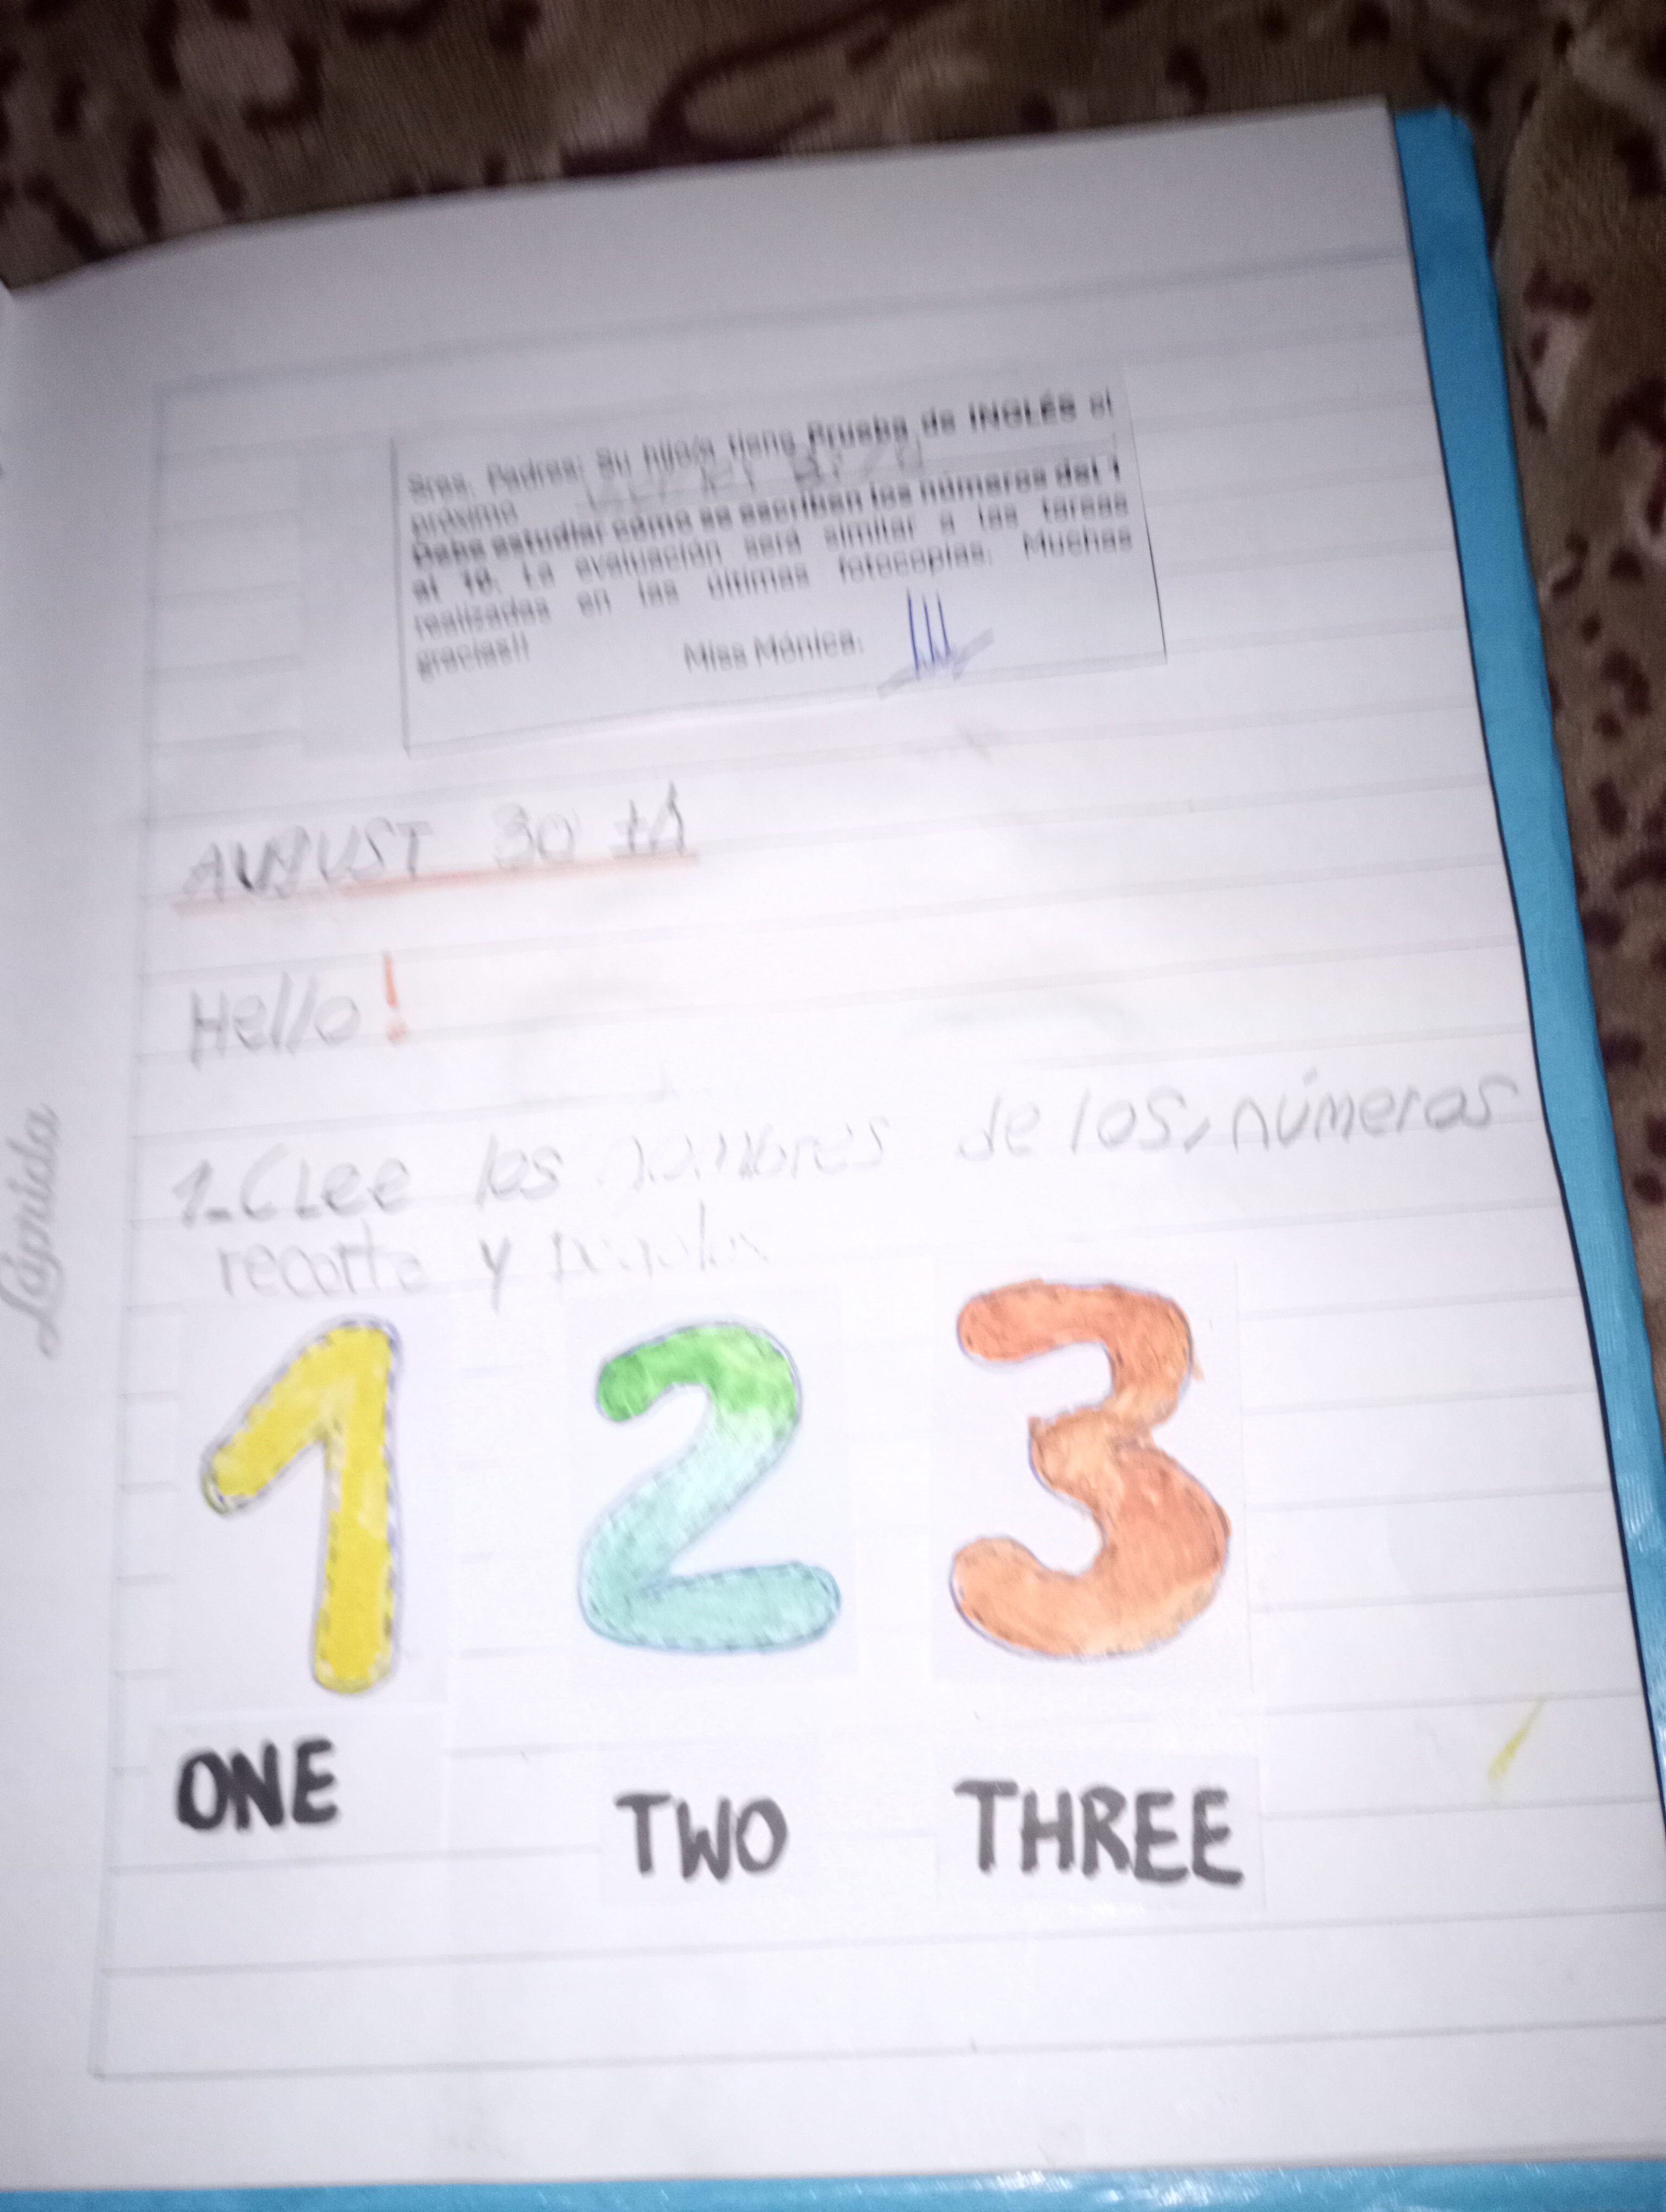 Sres. Padres: Su hijo/a tiene Prueba de INGLÉS el
próximo
Debe estudiar cómo se escriben los números del 1
al 10. La evaluación será similar a las tareas
realizadas en las últimas fotocopias. Muchas
gracias!!
Miss Mónica.
AUGUST 30 th
Hello!
1-(Lee los nombres de los, números
recorta y
ONE
TWO
THREE
Lápida